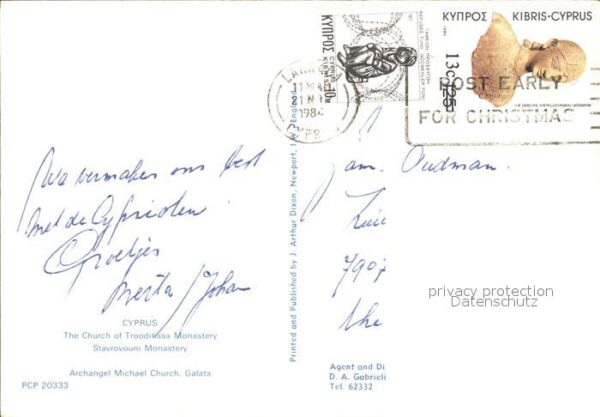 ΚΥΠΡΟΣ KIBRIS-CYPRUS
ΚΥΠΡΟΣ
CYPRUS
KIBRIS
10
13c
1984
POST EARLY
FOR CHRISTMAS
We vermaken ons best
met de Cyprioten
Groetjes
Johan
Fam. Oudman
7907
CYPRUS
The Church of Trooditissa Monastery
Stavrovouni Monastery
Archangel Michael Church, Galata
PCP 20333
Printed and Published by J. Arthur Dixon, Newport, I.W., England
privacy protection
Datenschutz
Agent and Di
D. A. Gabrieli
Tel. 62332